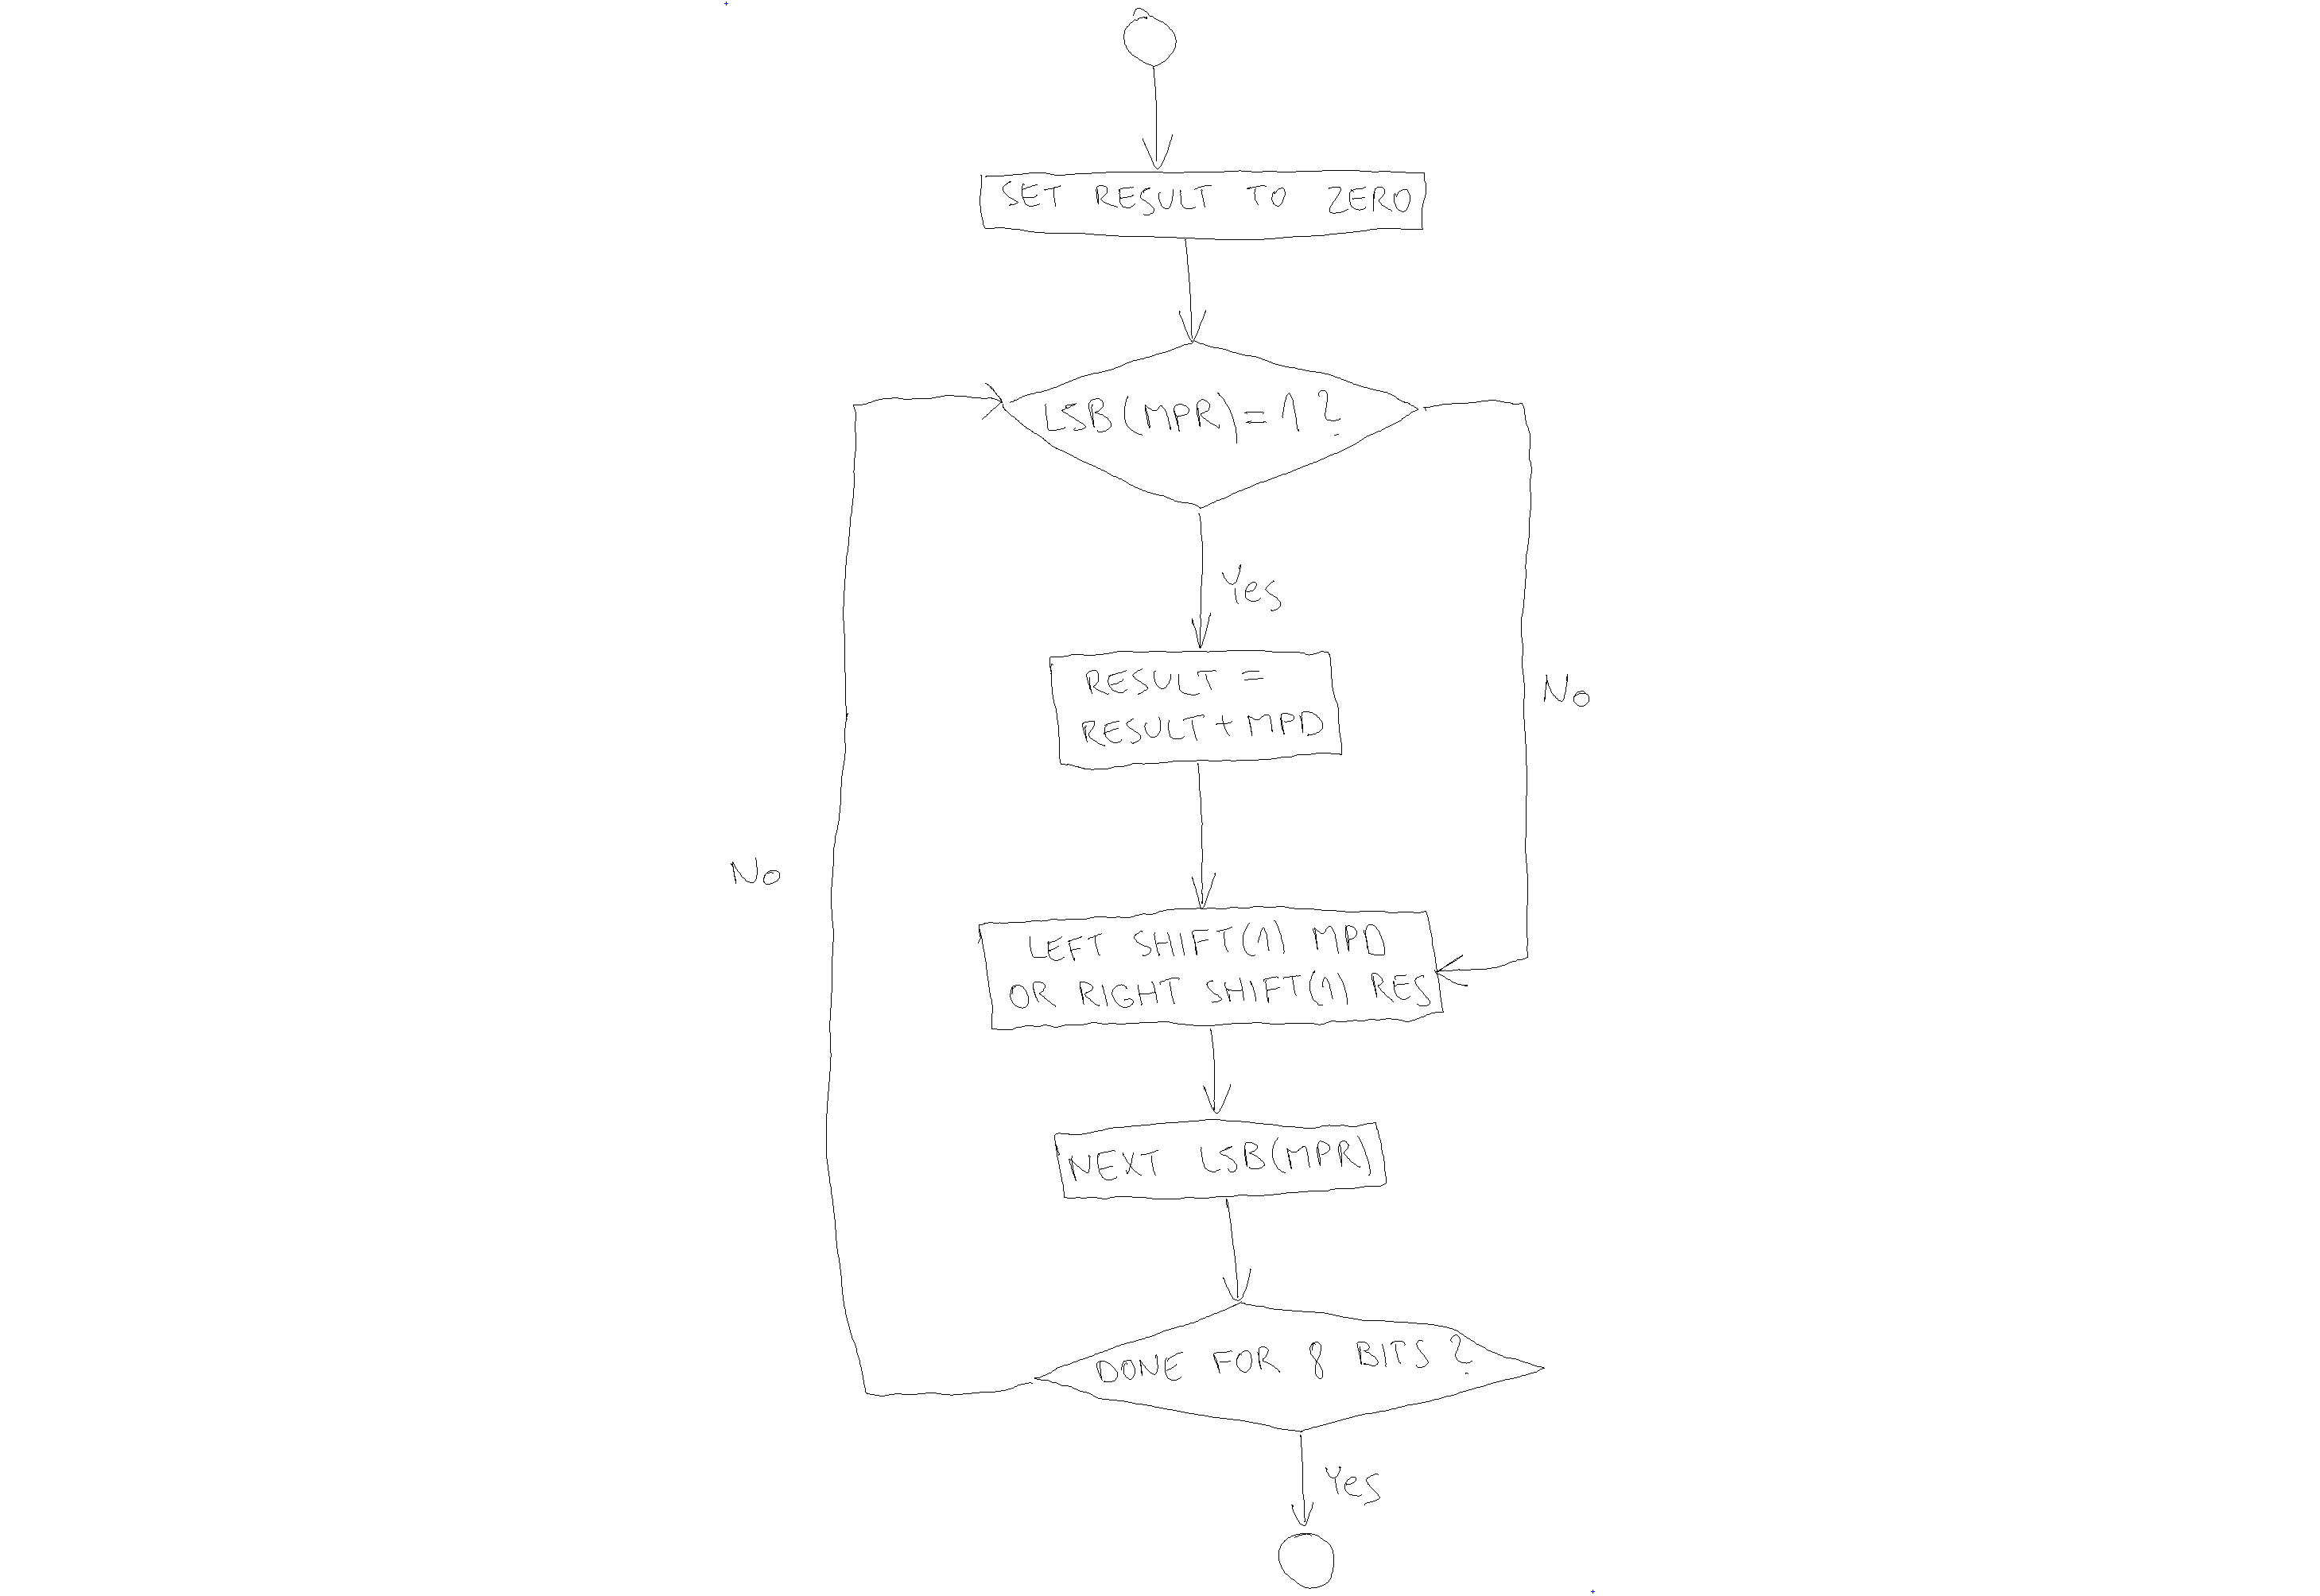 SET RESULT TO ZERO
LSB(MPR)=1?
Yes
RESULT =
RESULT+MPD
No
No
LEFT SHIFT(1) MPD
OR RIGHT SHIFT(1) RES
NEXT LSB(MPR)
DONE FOR 8 BITS?
Yes